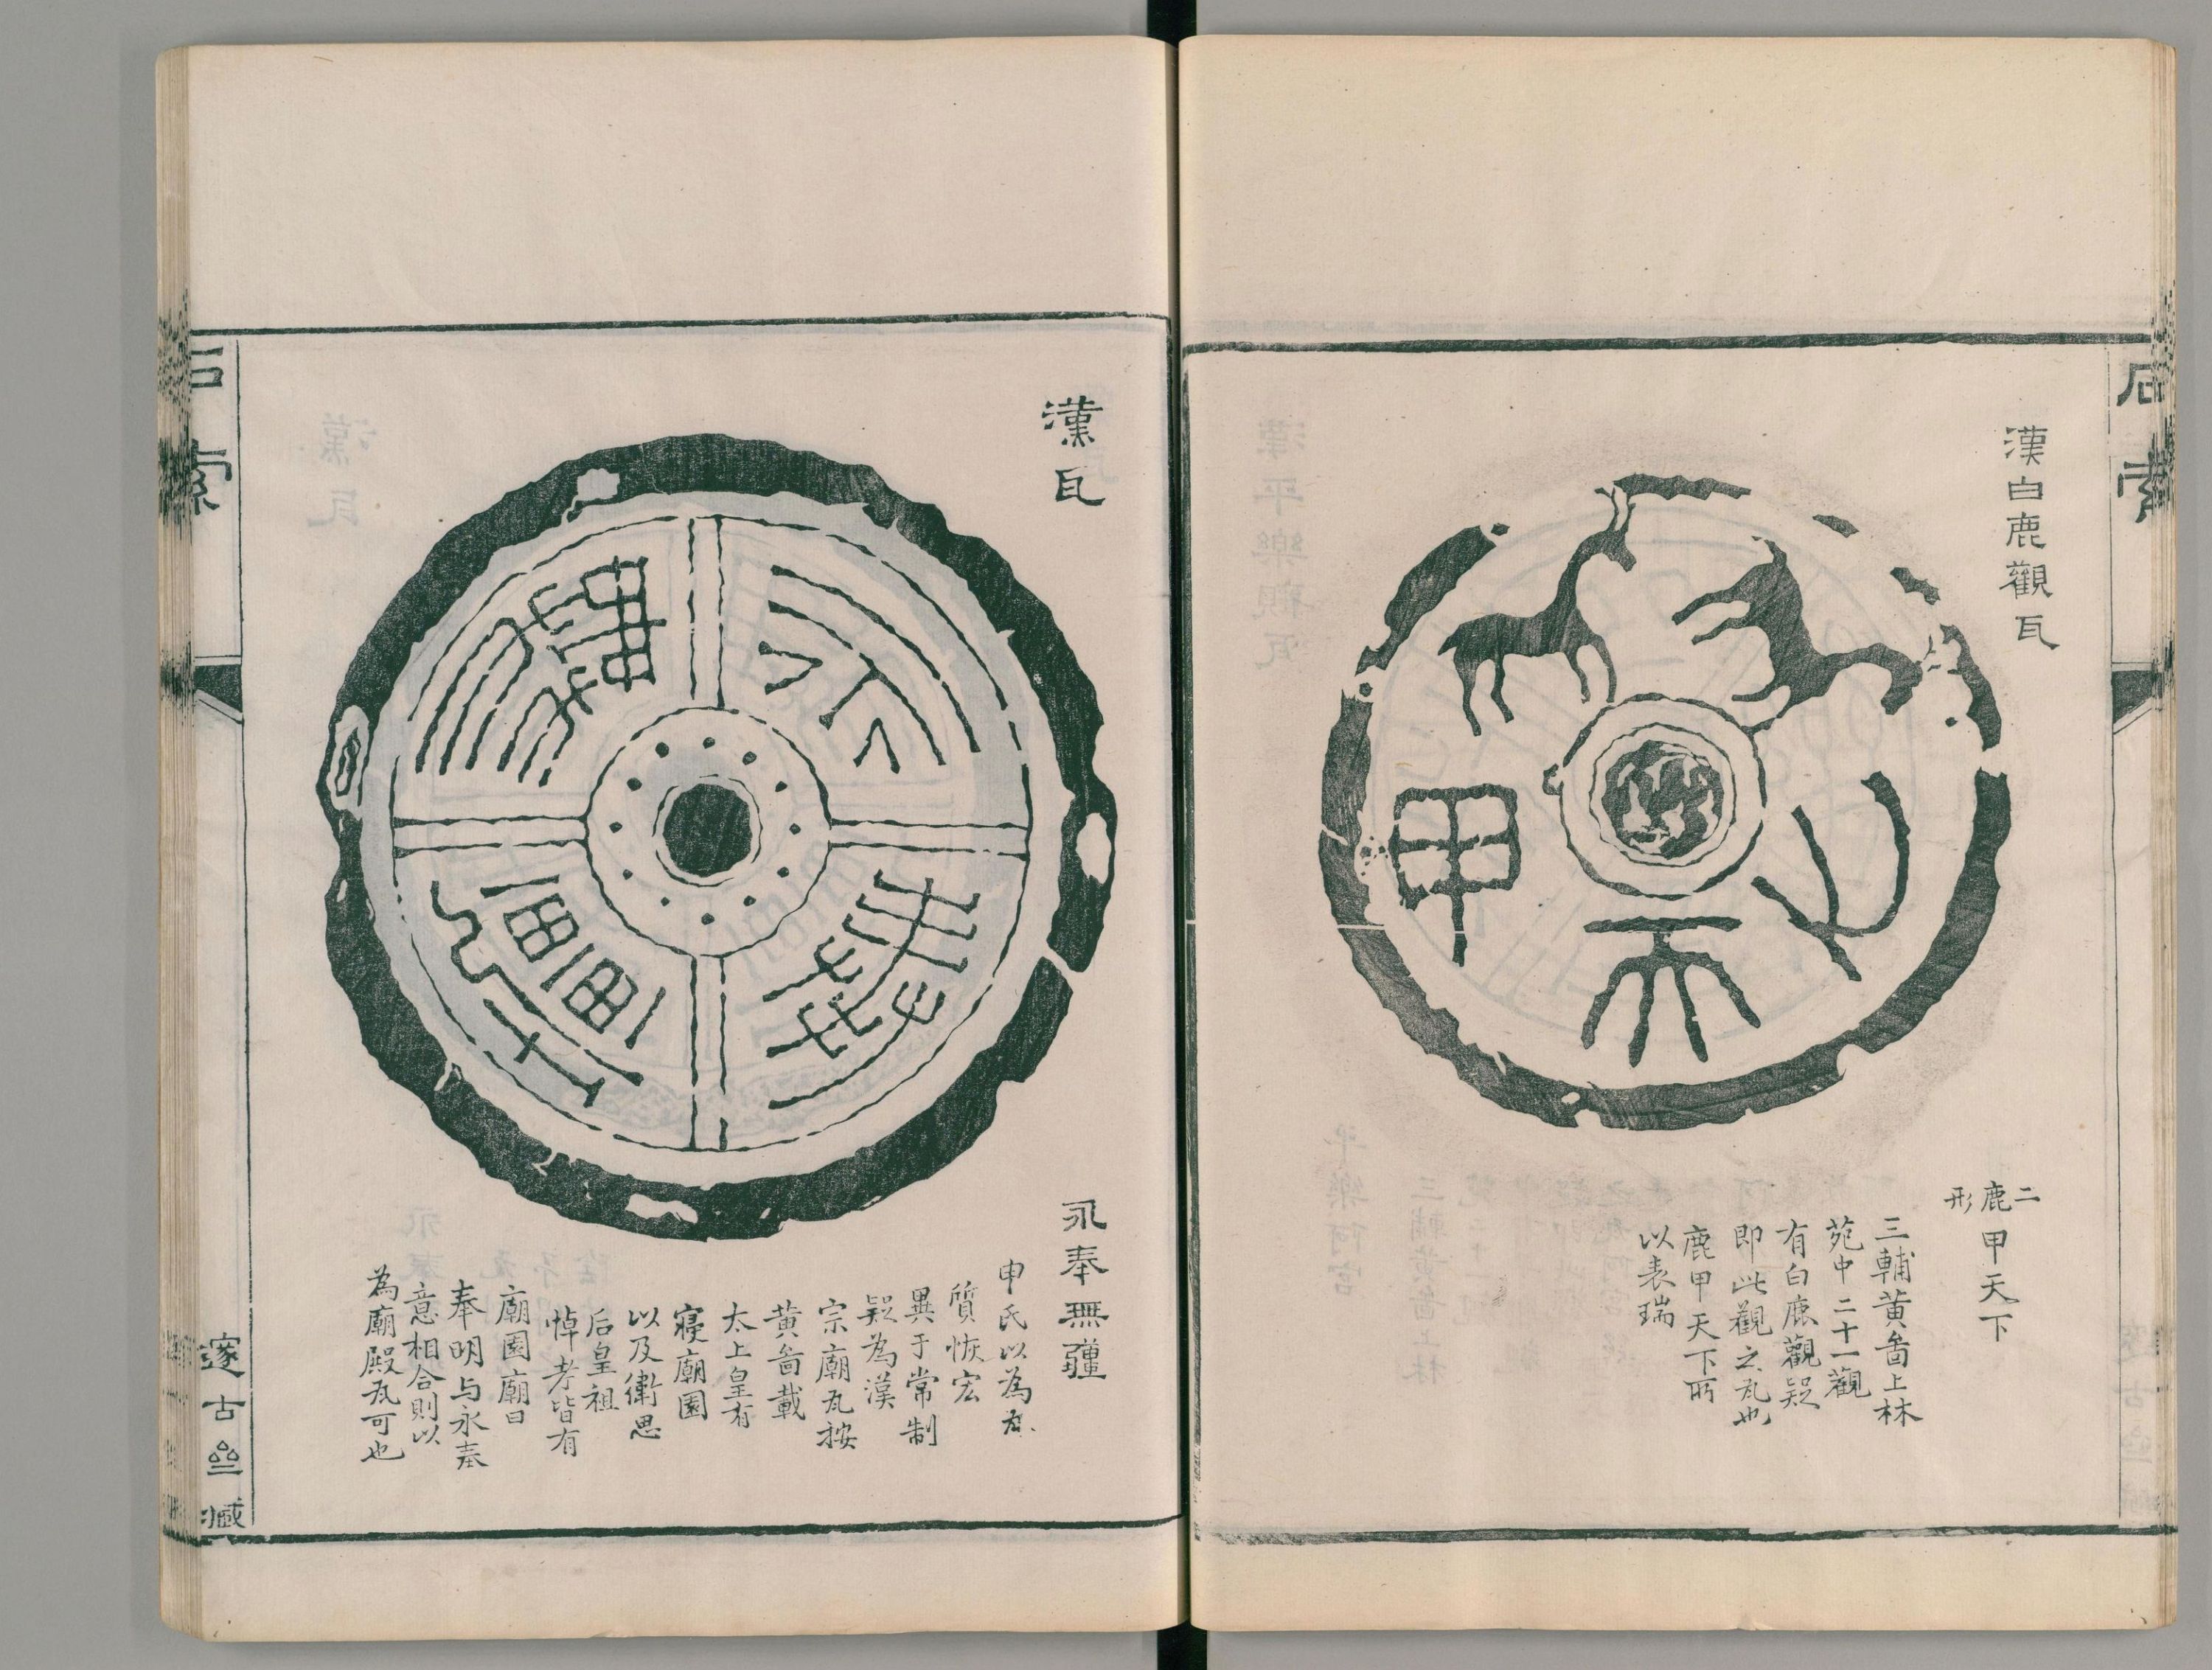 石索
漢白鹿觀瓦
甲天下
二鹿形
甲天下
三輔黃啚上林
苑中二十一觀
有白鹿觀疑
即此觀之瓦也
鹿甲天下所
以表瑞
漢瓦
永奉無疆
永奉無疆
申氏以為瓦
質恢宏
異于常制
疑為漢
宗廟瓦按
黃啚載
太上皇有
寢廟園
以及衛思
后皇祖
悼考皆有
廟園廟曰
奉明与永奉
意相合則以
為廟殿瓦可也
石索
邃古
藏